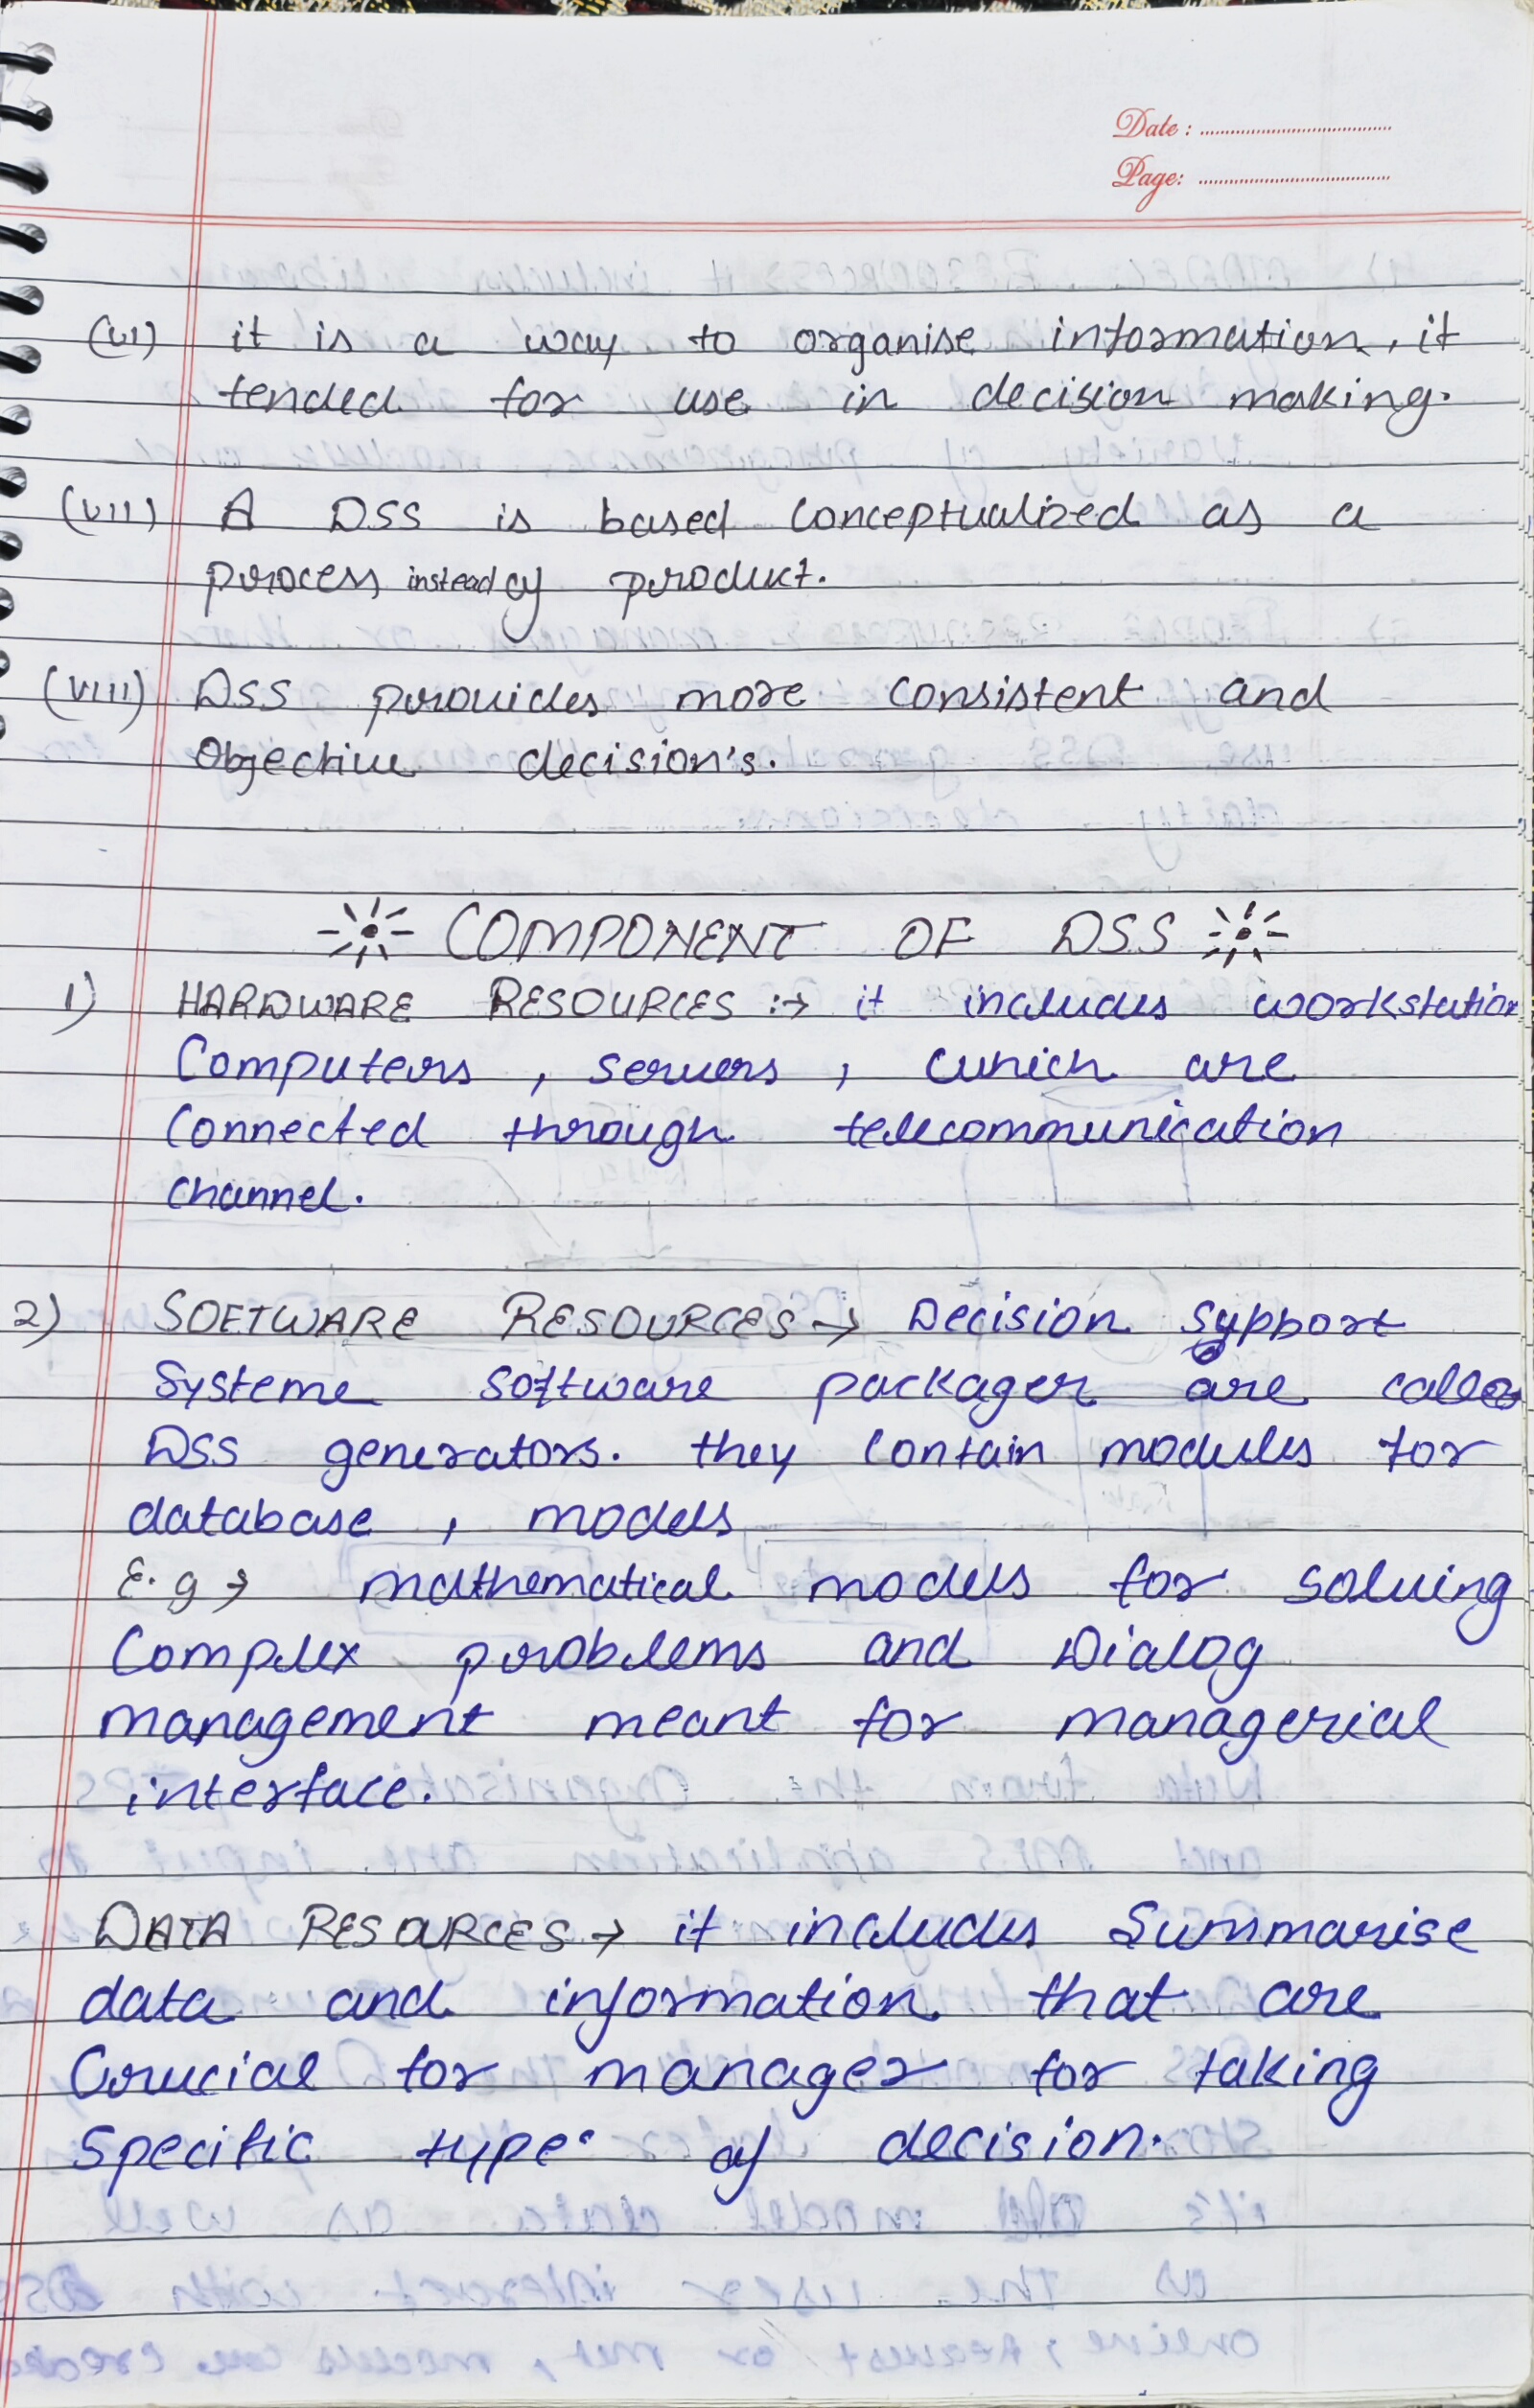 Date :
Page:
(VI) it is a way to organise information, it
tended for use in decision making.
(VII) A DSS is based conceptualized as a
process instead of product.
(VIII) DSS provides more consistent and
Objective decision's.
COMPONENT OF DSS
1) HARDWARE RESOURCES :→ it includes workstation
Computers , servers , which are
Connected through telecommunication
channel.
2) SOFTWARE RESOURCES → Decision Support
Systeme software packager are called
DSS generators. they contain modules for
database , models
E.g → mathematical models for solving
Complex problems and Dialog
management meant for managerial
interface.
DATA RESOURCES → it includes Summarise
data and information that are
Crucial for manager for taking
Specific type of decision.